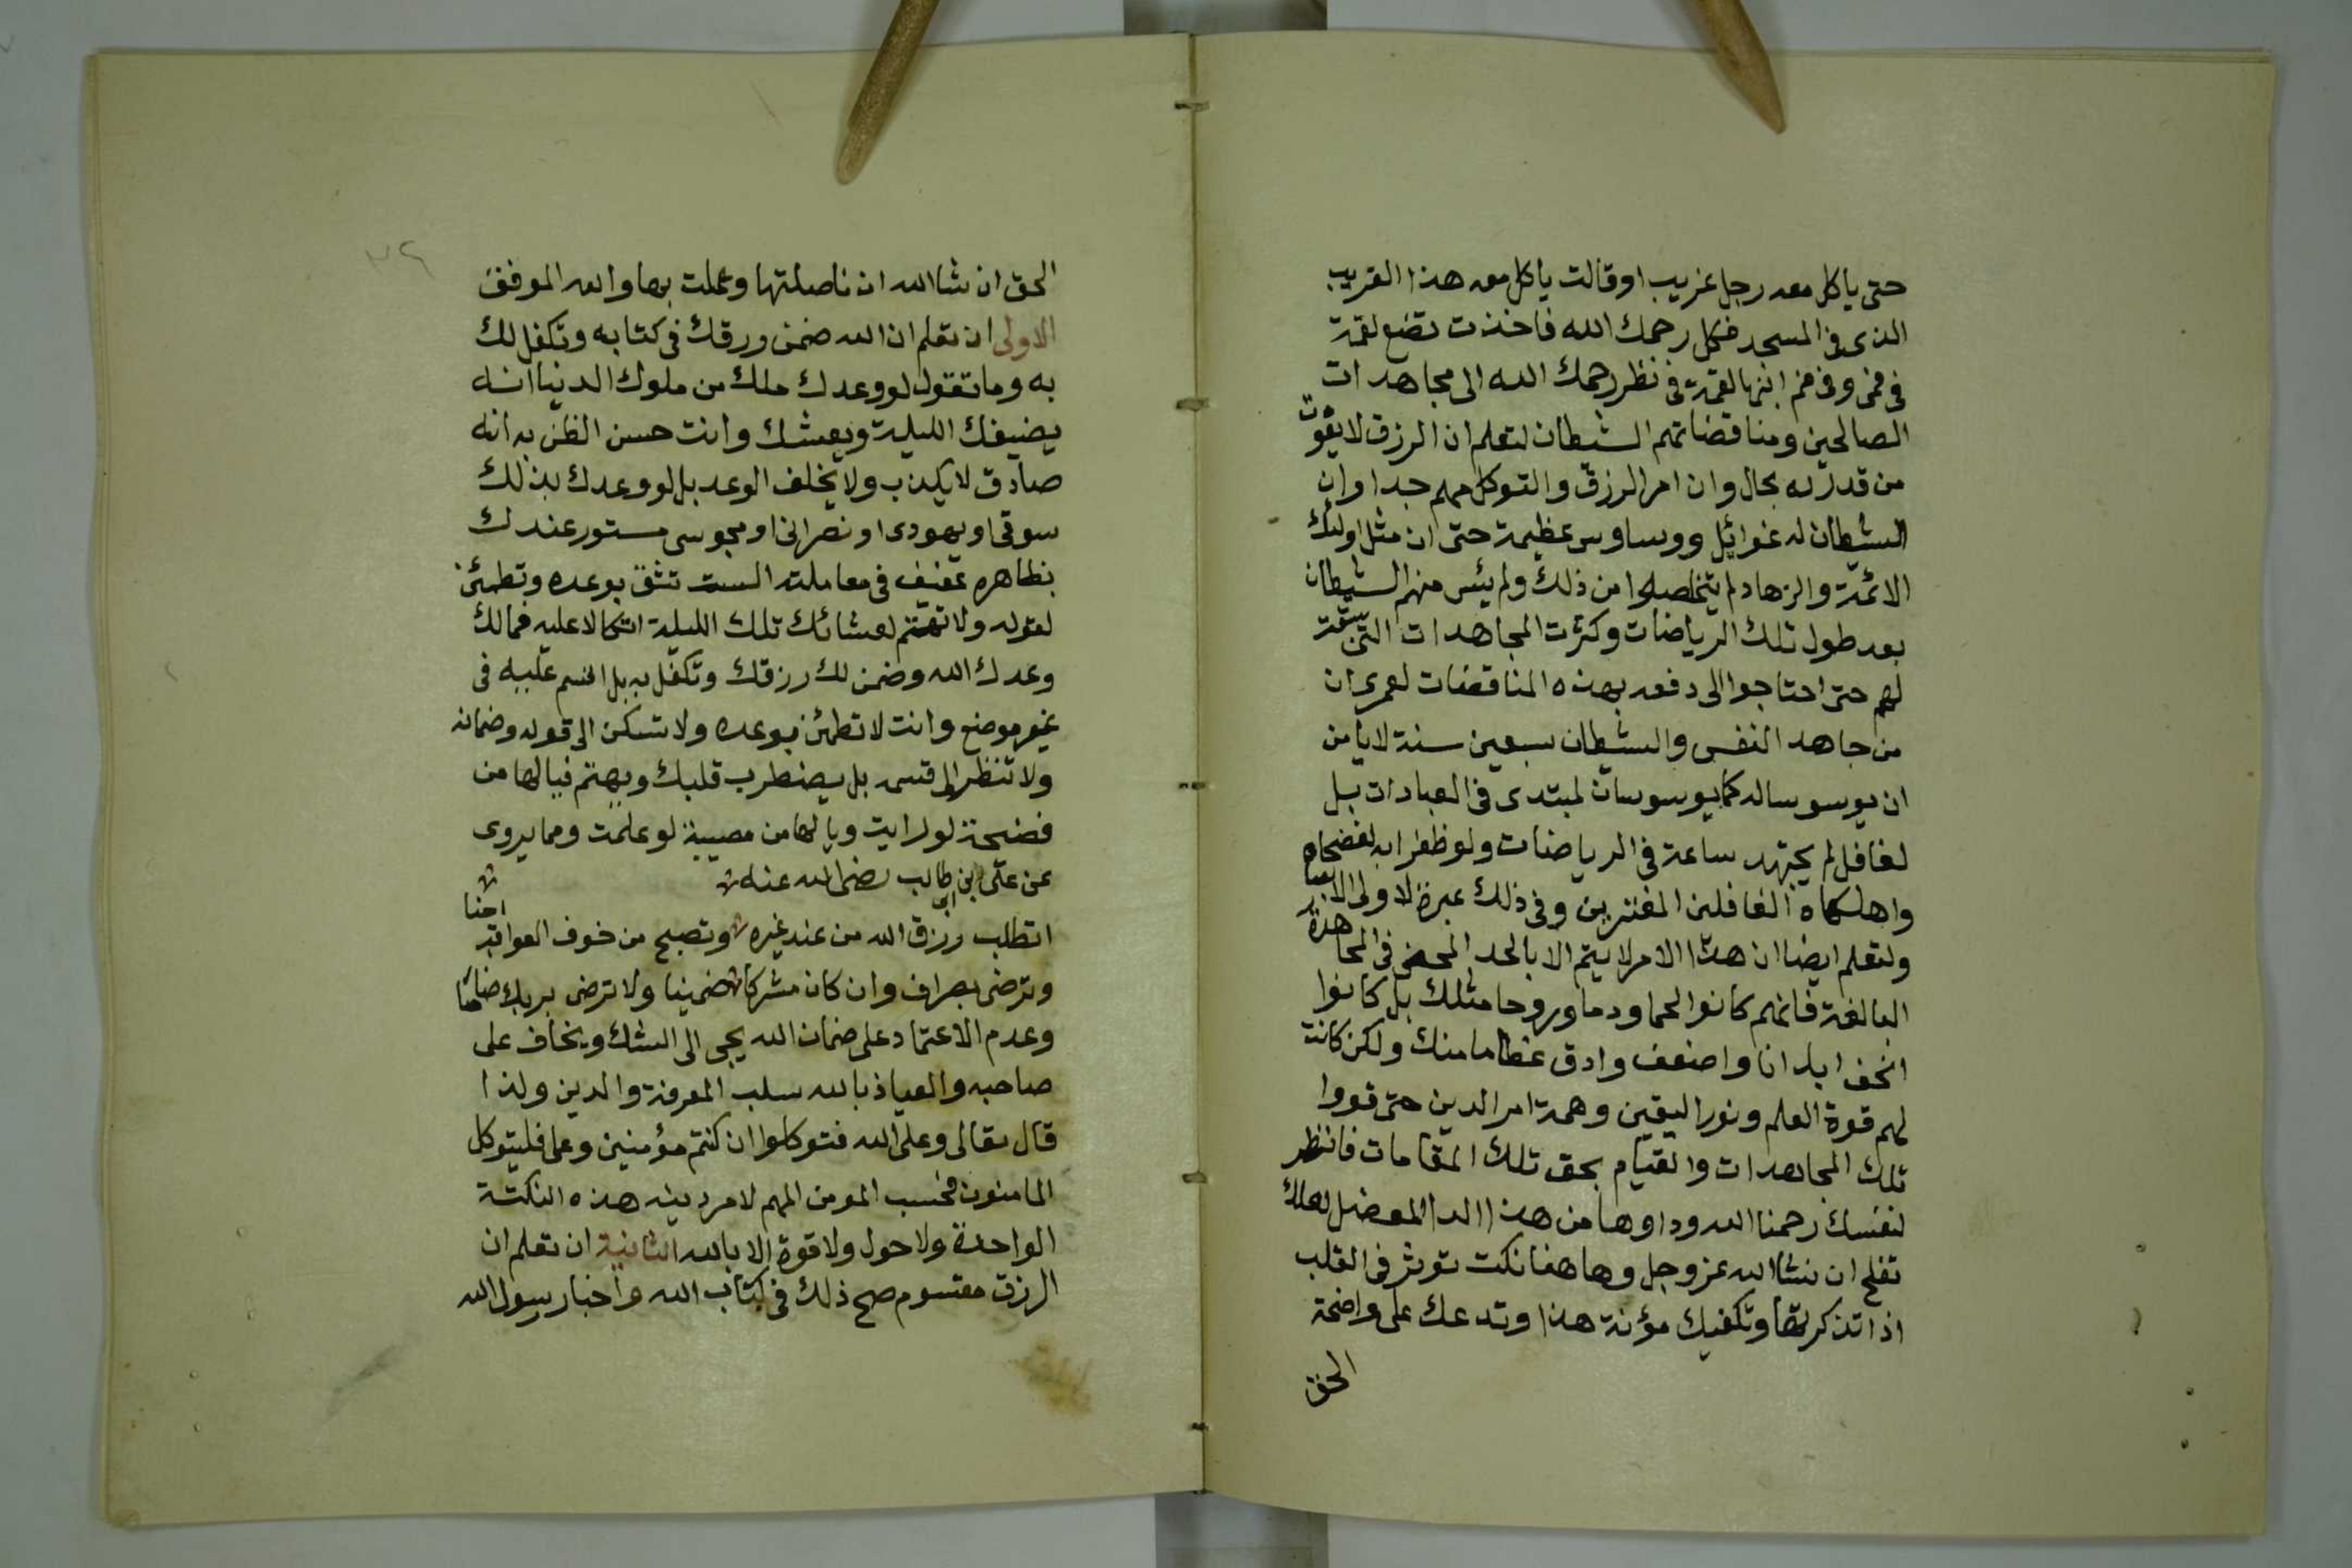 حتى ياكل معه رجل غريب او قالت ياكل معه هذا الغريب
الذى فى المسجد فكل رحمك الله فاخذت تضع لقمة
فى فمى وفى فم ابنها لقمة فانظر رحمك الله الى مجاهدات
الصالحين ومناقضاتهم الشيطان لتعلم ان الرزق لا يفوت
من قدر له بحال وان امر الرزق والتوكل مهم جدا وان
الشيطان له غوائل ووساوس عظيمة حتى ان مثل اولئك
الائمة والزهاد لم يتخلصوا من ذلك ولم يئس منهم الشيطان
بعد طول تلك الرياضات وكثرت المجاهدات التى سبقت
لهم حتى احتاجوا الى دفعه بهذه المناقضات لعمرى ان
من جاهد النفس والشيطان سبعين سنة لا يامن
ان يوسوسا له كما يوسوسان لمبتدى فى العبادات بل
لغافل لم يجتهد ساعة فى الرياضات ولو ظفرا به لفضحاه
واهلكاه الغافلين المغترين وفى ذلك عبرة لاولى الابصار
ولتعلم ايضا ان هذا الامر لا يتم الا بالجد المحض فى المجاهدة
البالغة فانهم كانوا لحما ودما وروحا مثلك بل كانوا
انحف ابدانا واضعف وادق عظاما منك ولكن كانت
لهم قوة العلم ونور اليقين وهمة امر الدين حتى قووا
تلك المجاهدات والقيام بحق تلك المقامات فانظر
لنفسك رحمنا الله وداوها من هذا الدا المعضل لعلك
تفلح ان شا الله عز وجل وهاهنا نكت توثر فى القلب
اذا تذكر بها وتكفيك مؤنة هذا وتدعك على واضحة
الحق
٧٢
الحق ان شا الله ان تاصلتها وعملت بها والله الموفق
الاولى ان تعلم ان الله ضمن ورقك فى كتابه وتكفل لك
به وما تقول لو وعدك ملك من ملوك الدنيا انه
يضيفك الليلة ويعشك وانت حسن الظن به انه
صادق لا يكذب ولا يخلف الوعد بل لو وعدك بذلك
سوقى او يهودى او نصرانى او مجوسى مستور عندك
بظاهره عفيف فى معاملته الست تثق بوعده وتطمئن
لقوله ولا تهتم لعشائك تلك الليلة اتكالا عليه فمالك
وعدك الله وضمن لك رزقك وتكفل به بل اقسم عليه فى
غير موضع وانت لا تطمئن بوعده ولا تسكن الى قوله وضمانه
ولا تنظر الى قسمه بل يضطرب قلبك ويهتم فيا لها من
فضيحة لو رايت ويا لها من مصيبة لو علمت ومما يروى
عن على بن ابى طالب رضى الله عنه
اتطلب رزق الله من عند غيره وتصبح من خوف العواقب امنا
وترضى بصراف وان كان مشركا ضمينا ولا ترضى بربك ضامنا
وعدم الاعتماد على ضمان الله يجى الى الشك ويخاف على
صاحبه والعياذ بالله سلب المعرفة والدين ولذا
قال تعالى وعلى الله فتوكلوا ان كنتم مؤمنين وعلى فليتوكل
المامنون فحسب المومن المهم لامر دينه هذه النكتة
الواحدة ولا حول ولا قوة الا بالله الثانية ان تعلم ان
الرزق مقسوم صح ذلك فى كتاب الله واخبار رسول الله